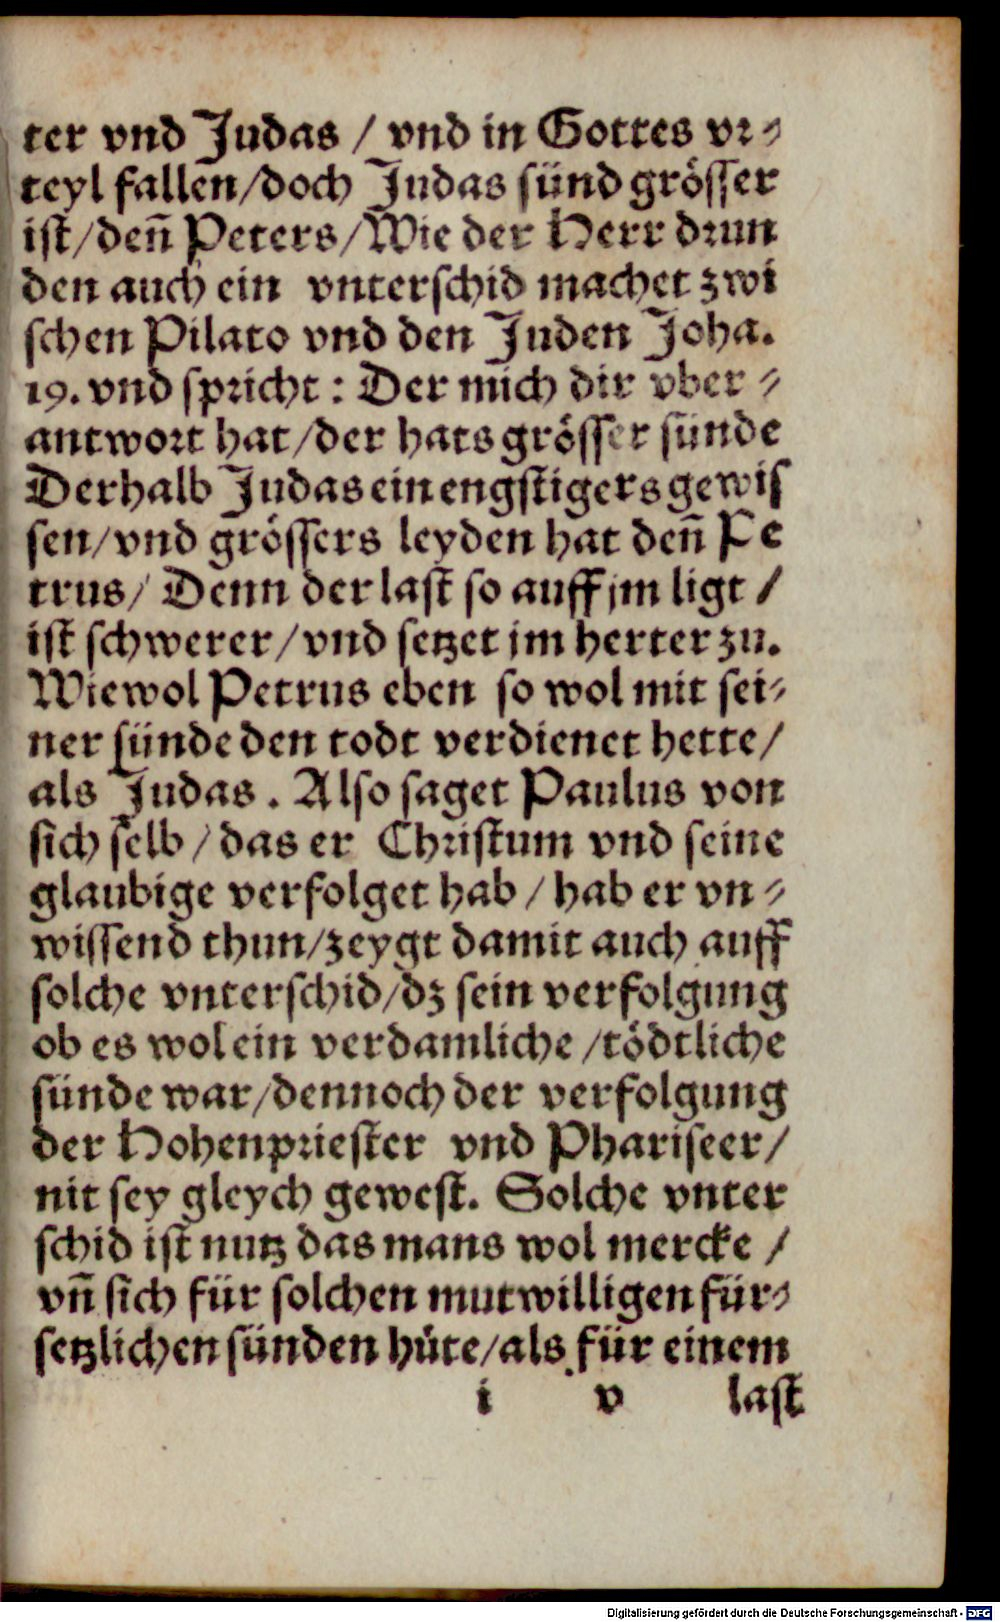 ter vnd Judas / vnd in Gottes vr⸗
teyl fallen/doch Judas sünd grösser
ist/deñ Peters/Wie der Herr drun
den auch ein vnterschid machet zwi
schen Pilato vnd den Juden Joha.
19. vnd spricht : Der mich dir vber⸗
antwort hat/der hats grösser sünde
Derhalb Judas ein engstigers gewis
sen/vnd grössers leyden hat deñ Pe
trus/ Denn der last so auff jm ligt /
ist schwerer/vnd setzet jm herter zu.
Wiewol Petrus eben so wol mit sei⸗
ner sünde den todt verdienet hette/
als Judas. Also saget Paulus von
sich selb / das er Christum vnd seine
glaubige verfolget hab / hab er vn⸗
wissend thun/zeygt damit auch auff
solche vnterschid/dz sein verfolgung
ob es wol ein verdamliche /tödtliche
sünde war/dennoch der verfolgung
der Hohenpriester vnd Phariseer/
nit sey gleych gewest. Solche vnter
schid ist nutz das mans wol mercke /
vñ sich für solchen mutwilligen für⸗
setzlichen sünden hüte/als für einem
i v last
Digitalisierung gefördert durch die Deutsche Forschungsgemeinschaft - DFG